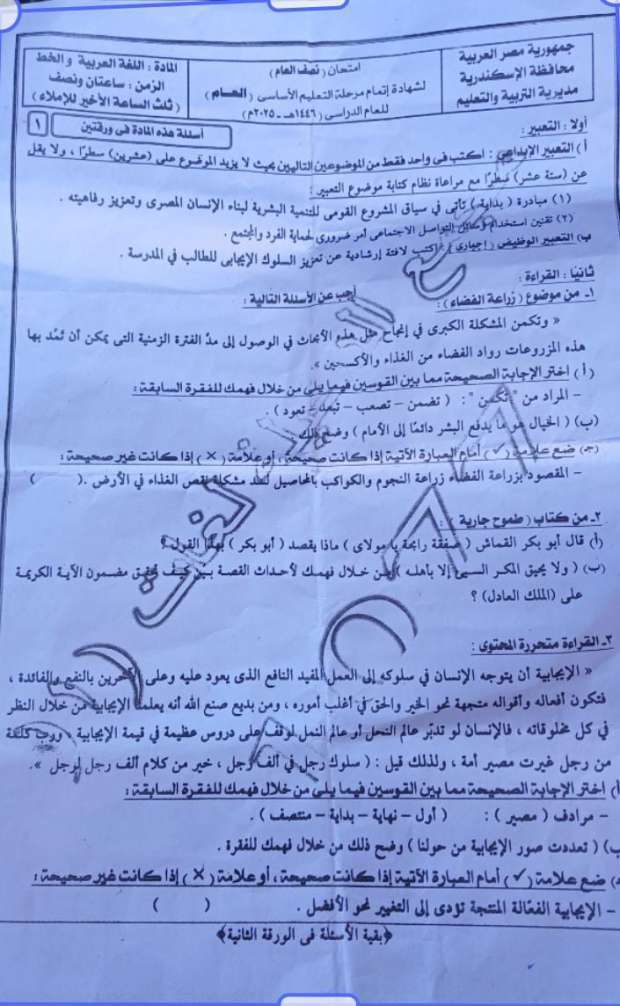 جمهورية مصر العربية
محافظة الإسكندرية
مديرية التربية والتعليم
امتحان (نصف العام)
لشهادة إتمام مرحلة التعليم الأساسى (العــام)
للعام الدراسى (١٤٤٦هـ - ٢٠٢٥م)
المادة : اللغة العربية والخط
الزمن : ساعتان ونصف
(ثلث الساعة الأخير للإملاء)
أسئلة هذه المادة فى ورقتين
١
أولا : التعبير :
أ) التعبير الإبداعى : اكتب فى واحد فقط من الموضوعين التاليين بحيث لا يزيد الموضوع على (عشرين) سطرًا ، ولا يقل
عن (ستة عشر) سطرًا مع مراعاة نظام كتابة موضوع التعبير :
(١) مبادرة (بداية) تأتى في سياق المشروع القومى للتنمية البشرية لبناء الإنسان المصرى وتعزيز رفاهيته .
(٢) تقنين استخدام وسائل التواصل الاجتماعى أمر ضرورى لحماية الفرد والمجتمع .
ب) التعبير الوظيفى (إجبارى) : اكتب لافتة إرشادية عن تعزيز السلوك الإيجابى للطالب في المدرسة .
ثانيًا : القراءة :
أجب عن الأسئلة التالية :
١ـ من موضوع (زراعة الفضاء) :
« وتكمن المشكلة الكبرى في إنجاح مثل هذه الأبحاث في الوصول إلى مدّ الفترة الزمنية التى يمكن أن تمد بها
هذه المزروعات رواد الفضاء من الغذاء والأكسجين ».
(أ) اختر الإجابة الصحيحة مما بين القوسين فيما يلى من خلال فهمك للفقرة السابقة :
- المراد من "تكمن" : ( تضمن – تصعب – تبعد – تعود ) .
(ب) ( الخيال هو ما يدفع البشر دائمًا إلى الأمام ) وضح ذلك
(جـ) ضع علامة (✓) أمام العبارة الآتية إذا كانت صحيحة ، أو علامة (✗) إذا كانت غير صحيحة :
- المقصود بزراعة الفضاء زراعة النجوم والكواكب بالمحاصيل لسد مشكلة نقص الغذاء في الأرض .( )
٢ـ من كتاب (طموح جارية) :
(أ) قال أبو بكر القماش ( صفقة رابحة يا مولاى ) ماذا يقصد ( أبو بكر ) بهذا القول ؟
(ب) ( ولا يحيق المكر السيئ إلا بأهله ) من خلال فهمك لأحداث القصة بين كيف تحقق مضمون الآية الكريمة
على (الملك العادل) ؟
٣ـ القراءة متحررة المحتوى :
« الإيجابية أن يتوجه الإنسان في سلوكه إلى العمل المفيد النافع الذى يعود عليه وعلى الآخرين بالنفع والفائدة ،
فتكون أفعاله وأقواله متجهة نحو الخير والحق في أغلب أموره ، ومن بديع صنع الله أنه يعلمنا الإيجابية من خلال النظر
في كل مخلوقاته ، فالإنسان لو تدبّر عالم النحل أو عالم النمل لوقف على دروس عظيمة في قيمة الإيجابية ، ورب كلمة
من رجل غيرت مصير أمة ، ولذلك قيل : ( سلوك رجل في ألف رجل ، خير من كلام ألف رجل لرجل ».
أ) اختر الإجابة الصحيحة مما بين القوسين فيما يلى من خلال فهمك للفقرة السابقة :
- مرادف ( مصير ) : ( أول – نهاية – بداية – منتصف ) .
ب) ( تعددت صور الإيجابية من حولنا ) وضح ذلك من خلال فهمك للفقرة .
ضع علامة (✓) أمام العبارة الآتية إذا كانت صحيحة ، أو علامة (✗) إذا كانت غير صحيحة :
- الإيجابية الفعّالة المنتجة تؤدى إلى التغيير نحو الأفضل . ( )
﴿بقية الأسئلة فى الورقة الثانية﴾